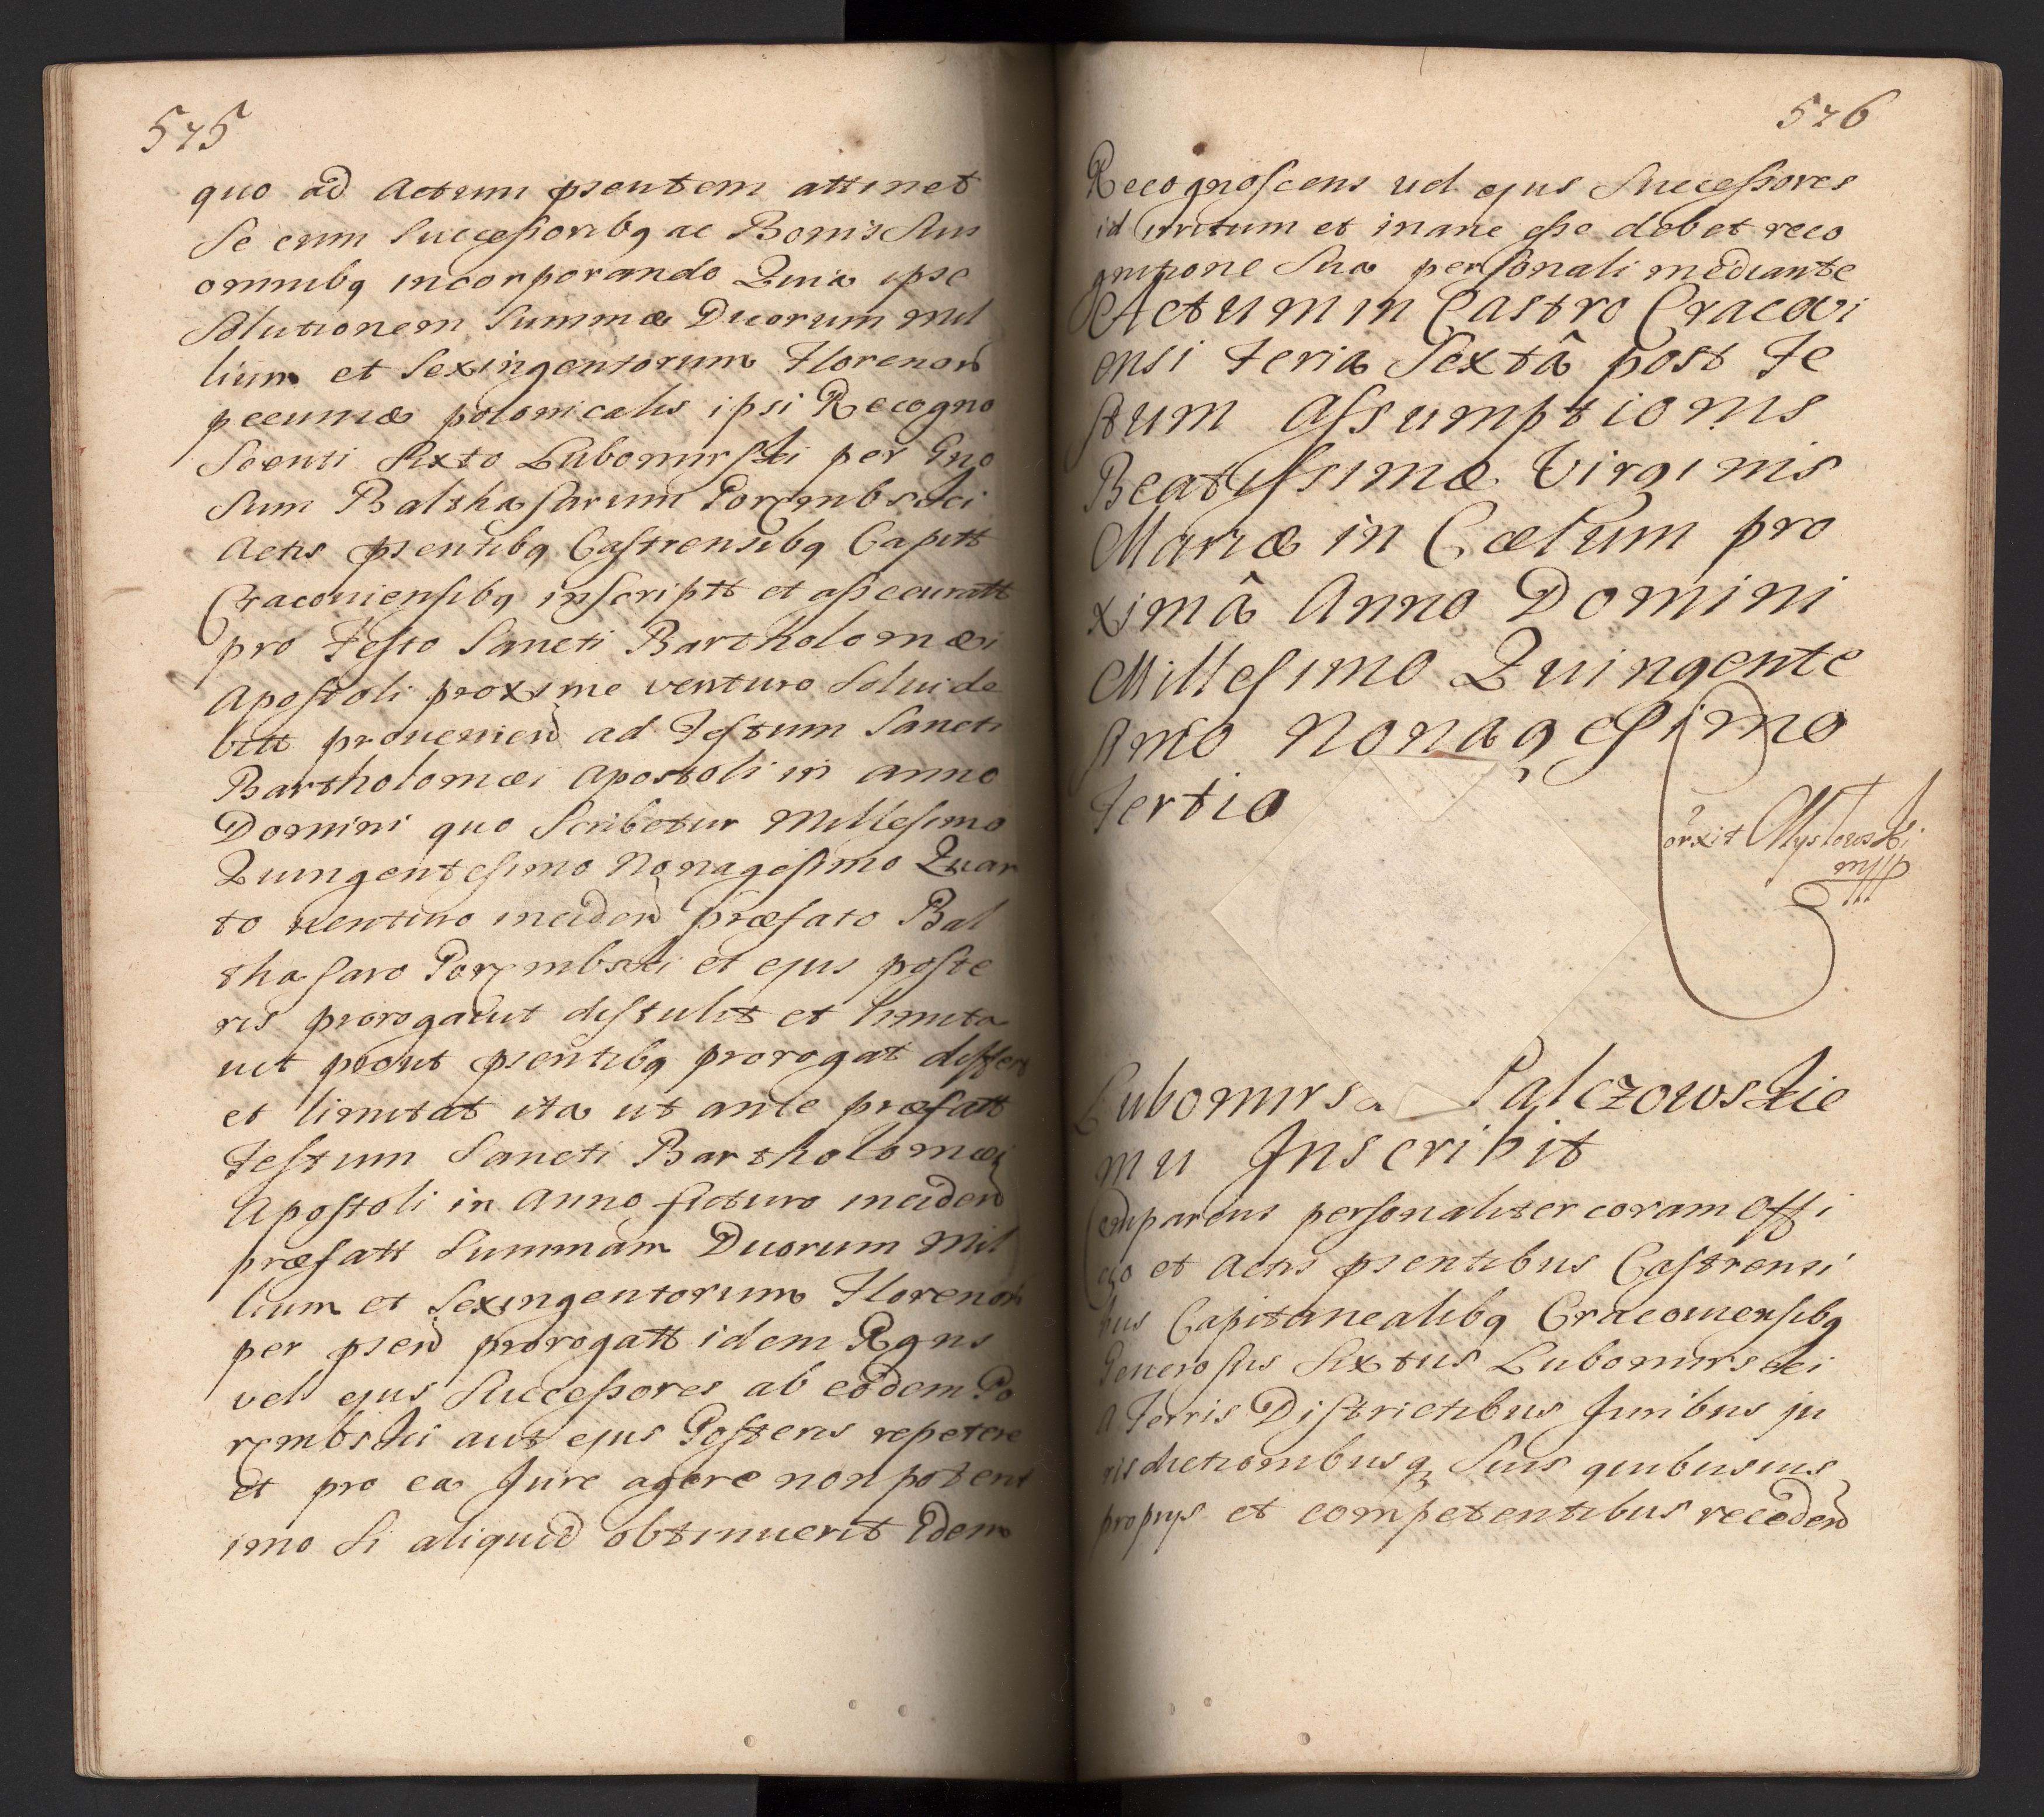 575
quo ad Actum pſentem attinet
Se cum Succeſſoribq ac Bonis Suis
omnibq incorporando Quia ipse
Solutionem Summæ Duorum Mil
lium et Sexingentorum Florenor
pecuniæ polonicalis ipsi Recogno
Scenti Sixto Lubomirſki per Gno
Sum Balthaſarum Porembski
Actis pſentibq Caſtrensibq Capitt
Cracouienſibq inſcriptt et aſſecuratt
pro Feſto Sancti Bartholomæi
Apoſtoli proxime venturo Solui de
bitt prouenien ad Feſtum Sancti
Bartholomæi Apostoli in anno
Domini quo Scribetur Milleſimo
Quingenteſimo Nonageſimo Quar
to venturo inciden præfato Bal
thaſaro Porembski et ejus poſte
ris prorogavit diſtulit et limita
uit prout pſentibq prorogat differt
et limitat ita ut ante præfatt
Feſtum Sancti Bartholomæi
Apoſtoli in Anno futuro inciden
præfatt Summam Duorum Mil
lium et Sexingentorum Florenor
per pſen prorogatt idem Rgns
vel ejus Succeſſores ab eodem Po
rembski aut ejus Poſteris repetere
et pro ea Jure agere non potent
imo Si aliquid obtinuerit Idem
576
Recognoſcens uel ejus Succeſſores
id irritum et inane eſſe debet reco
gnitione Sua perſonali mediante
Actum in Castro Cracovi
ensi Feria Sextâ post Fe
ſtum Aſsumptionis
Beatiſsimæ Virginis
Mariæ in Cœlum pro
ximâ Anno Domini
Milleſimo Quingente
ſimo Nonageſimo
Tertio
Lubomirs Palczowskie
mu Inscribit
Comparens perſonaliter coram Offi
cio et Actis pſentibus Caſtrensi
bus Capitanealibq Cracouienſibq
Generoſus Sixtus Lubomirski
A Terris Diſtrictibus Juribus ju
risdictionibusq Suis quibusuis
proprys et competentibus receden